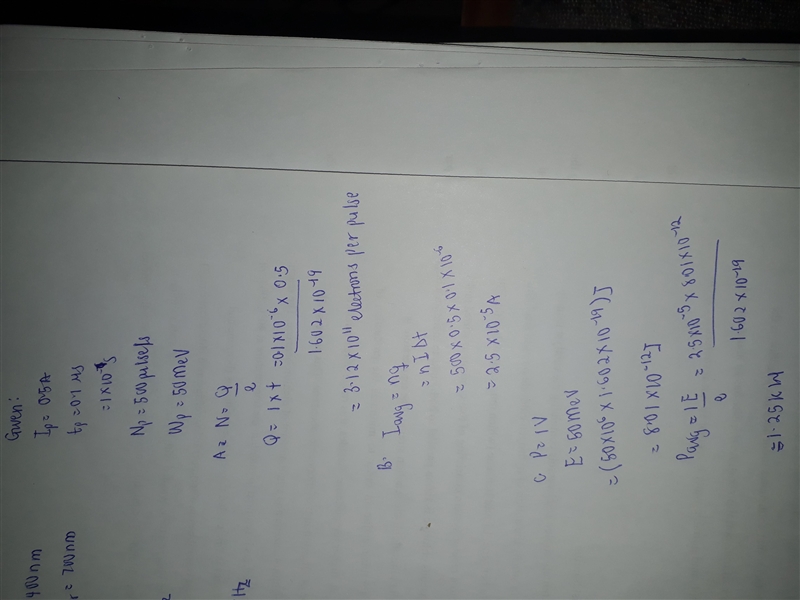 400nm
r = 700nm
Hz
Given:
Ip = 0.5A
tp = 0.1 μs
= 1×10⁻⁷s
Np = 500 pulse/s
Wp = 50 MeV
A = N = Q/e
Q = I x t = 0.1×10⁻⁶ x 0.5
1.602 x 10⁻¹⁹
= 3.12 x 10¹¹ electrons per pulse
B. Iavg = nq
= nIΔt
= 500 x 0.5 x 0.1 x 10⁻⁶
= 2.5 x 10⁻⁵A
C P = IV
E = 50 MeV
= (50x10⁶ x 1.602 x 10⁻¹⁹)J
= 8.01 x 10⁻¹²J
Pavg = IE/e = 2.5x10⁻⁵ x 8.01x10⁻¹²
1.602 x 10⁻¹⁹
= 1.25kW